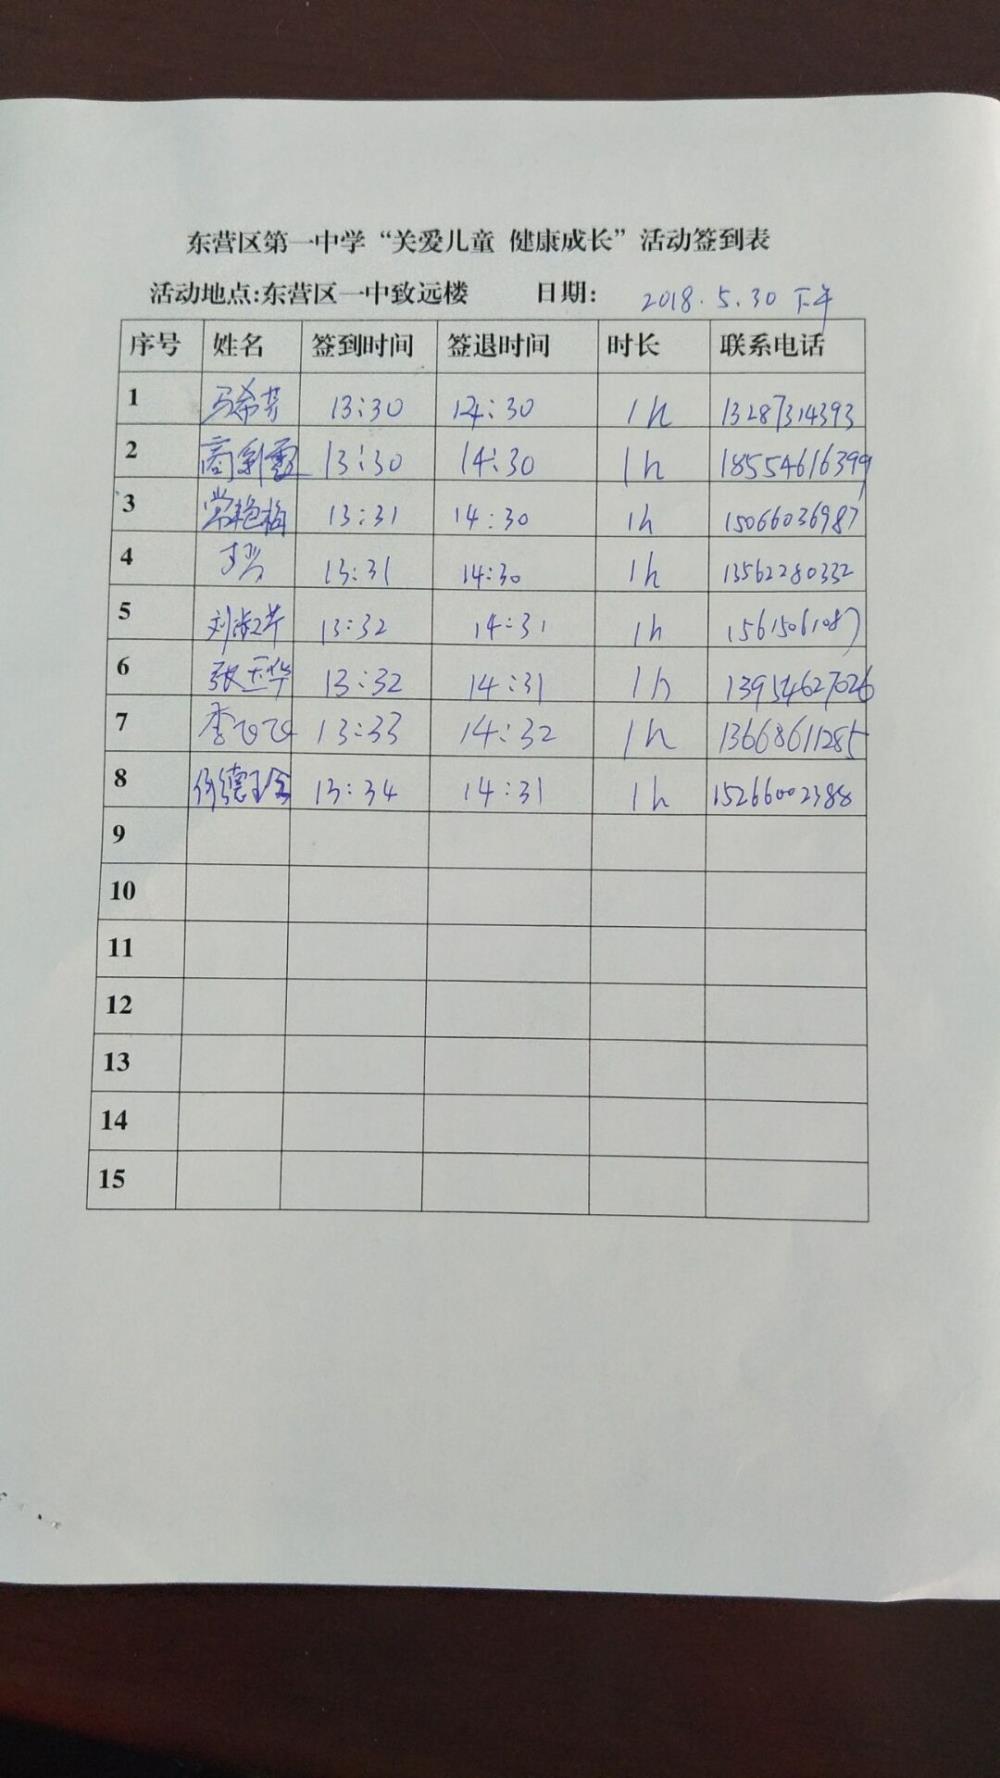 东营区第一中学“关爱儿童 健康成长”活动签到表
活动地点:东营区一中致远楼 日期: 2018.5.30 下午
序号 姓名 签到时间 签退时间 时长 联系电话
1 马希芳 13:30 14:30 1h 13287314393
2 商利霞 13:30 14:30 1h 18554616399
3 常艳梅 13:31 14:30 1h 15066036987
4 13:31 14:30 1h 13562280332
5 刘淑芹 13:32 14:31 1h 15615061087
6 张玉华 13:32 14:31 1h 13954627026
7 李飞飞 13:33 14:32 1h 13668611285
8 13:34 14:31 1h 15266002388
9
10
11
12
13
14
15